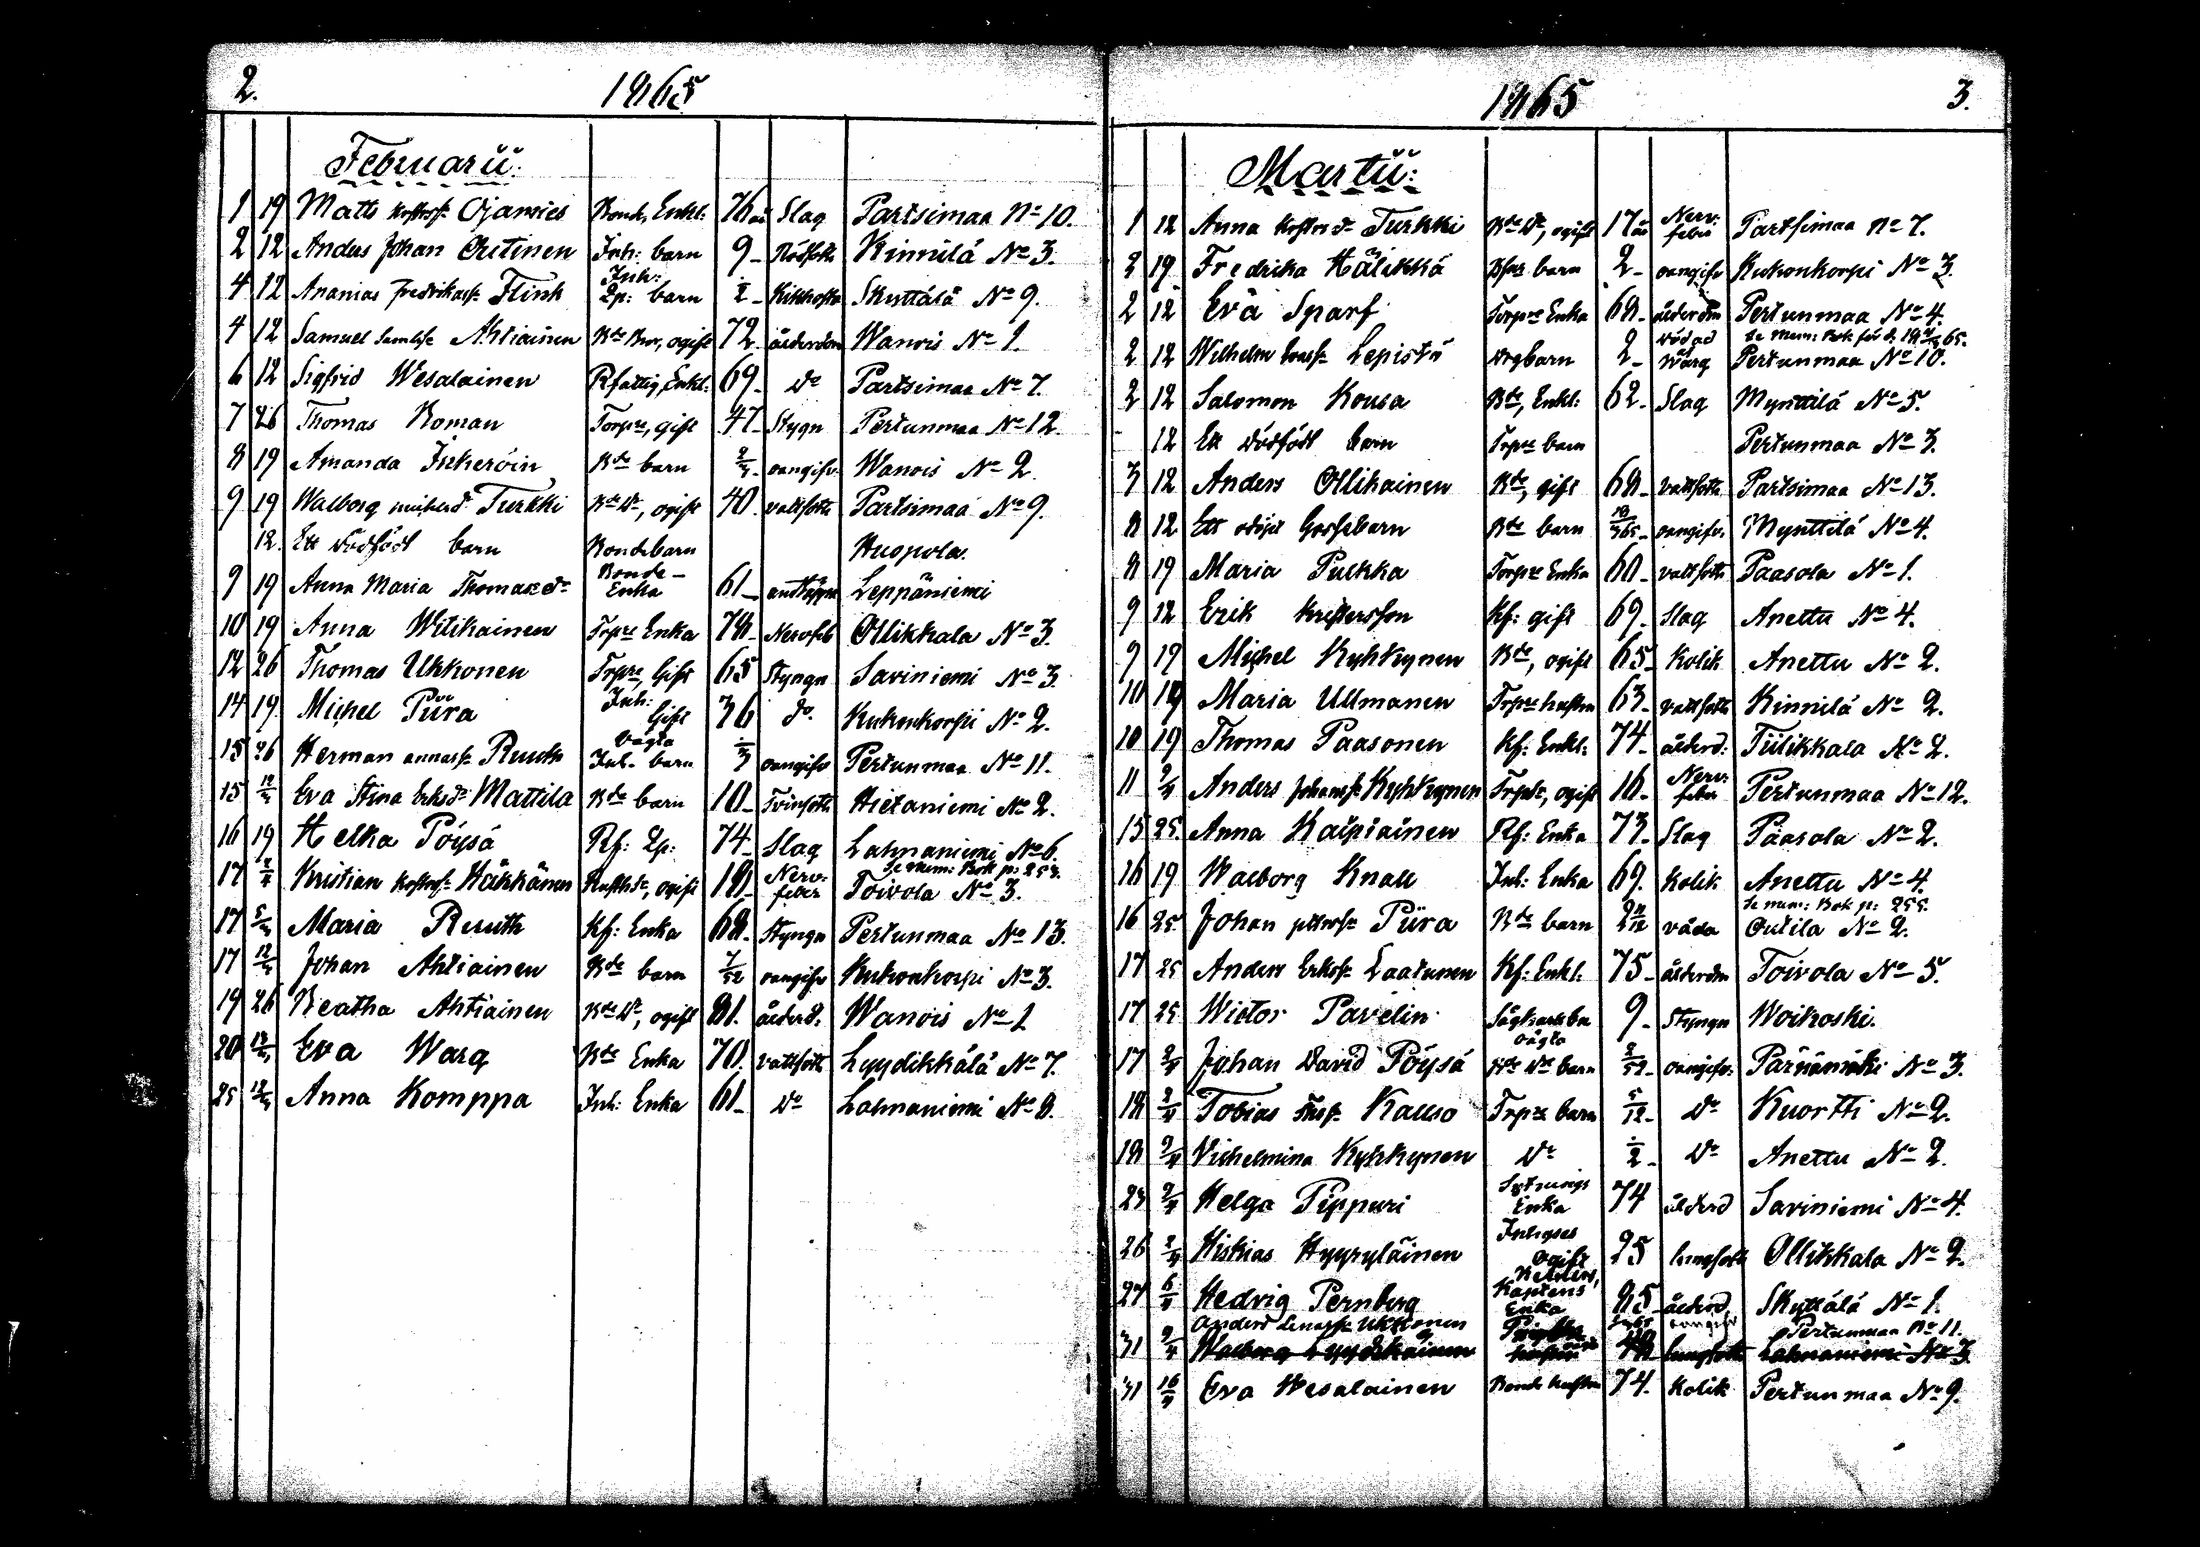 2. 1865
Februarii:
1 19 Matts Ojamies Bonde, Enkl: 76 år Slag Partsimaa No 10.
2 12 Anders Johan Outinen Inh: barn 9 Rödsott Kinnilä No 3.
Inh:
4 12 Ananias Fredrikss: Flink Lp: barn Kikhosta Skyttälä No 9.
4 12 Samuel Samlss: Ahtiainen Bde Bror, ogift 72 ålderdom Wanois No 1.
6 12 Sigfrid Wesalainen Rfattig, Enkl: 69 do Partsimaa No 7.
7 26 Thomas Roman Torpre, gift 47 Stygn Pertunmaa No 12.
8 19 Amanda Inkeröin Bde barn oangifv. Wanois No 2.
9 19 Walborg Turkki Bde Dr, ogift 40. vattsott Partsimaa No 9.
12. Ett dödfödt barn Bondebarn Huopola.
Bonde-
9 19 Anna Maria Thomasd: Enka 61 andtäppa Leppäniemi
10 19 Anna Witikainen Trpre Enka 78 Nervfeb Ollikkala No 3.
12 26 Thomas Ukkonen Trpre, Gift 65 Styngn Saviniemi No 3.
Inh:
14 19 Michel Piira Gift 36 do. Kukonkorpi No 2.
oägta
15 26 Herman annass: Ruuth Inh. barn oangifv Pertunmaa No 11.
15 12/3 Eva Stina Eriksdr Mattila Bde barn 10 Tvinsott Hietaniemi No 2.
16 19 Helka Pöysä Rf: Lp: 74 Slag Lahnaniemi No 6.
Nerv- Se mem: Bok p: 253.
17 2/4 Kristian Häkkänen ogift 18 feber Toivola No 3.
17 5/3 Maria Ruuth Kf: Enka 68 Styngn Pertunmaa No 13.
17 12/3 Johan Ahtiainen Bde barn 7/52 oangifv Kukonkorpi No 3.
19 26 Beatha Ahtiainen Bde Dr, ogift 81. ålderd: Wanois No 1
20 12/3 Eva Warg Bde Enka 70. vattsott Lyydikkälä No 7.
25 12/3 Anna Komppa Inh: Enka 61 do Lahnaniemi No 8.
1865 3.
Martii:
Nerv-
1 12 Anna Turkki Bde Dr, ogift 17 år feber Partsimaa No 7.
2 19 Fredrika Hälikkä barn 2 oangifv Kukonkorpi No 3.
2 12 Eva Sparf Torpre Enka 68 ålderdom Pertunmaa No 4.
död ad Se mem: Bok för d. 65.
2 12 Wilhelm Lepistö barn 2 Pertunmaa No 10.
2 12 Salomon Kousa Bde, Enkl: 62. Slag Mynttilä No 5.
12 Ett dödfödt barn Trpre barn Pertunmaa No 3.
3 12 Anders Ollikainen Bde, gift 68 vattsott Partsimaa No 13.
8 12 Ett odöpt Gossebarn Bde barn oangifv. Mynttilä No 4.
8 19 Maria Pulkka Torpre Enka 60 vattsott Paasola No 1.
9 12 Erik Kristersson Kf: gift 69. Slag Anettu No 4.
9 19 Michel Kykkynen Bde, ogift 65 Kolik Anettu No 2.
10 19 Maria Ullmanen Trpre hustru 63. vattsott Kinnilä No 2.
10 19 Thomas Paasonen Kf: Enkl: 74 ålderd: Tiilikkala No 2.
Nerv-
11 2/4 Anders Johanss: Kykkynen ogift 16. feber Pertunmaa No 12.
15 25. Anna Kaipiainen Rf: Enka 73. Slag Paasola No 2.
16 19 Walborg Knall Inh: Enka 69. Kolik Anettu No 4.
Se mem: Bok p: 255.
16 25. Johan Piira Bde barn våda Outila No 2.
17 25 Anders Erikss: Laatunen Kf: Enkl: 75 ålderdom Toivola No 5.
17 25. Wictor Pavelin 9 Styngn Woikoski.
oägta
17 2/4 Johan David Pöysä Bde Drs barn 2/52 oangifv. Pärnämäki No 3.
18 2/4 Tobias Kauso Trpre barn 5/12 do Kuortti No 2.
18 2/4 Vilhelmina Kykkynen do do Anettu No 2.
Sytnings
23 2/4 Helga Pippuri Enka 74 ålderd Saviniemi No 4.
Inhyses
26 2/4 Hiskias Hyyryläinen Ogift 25 lungsott Ollikkala No 2.
Kaptens
27 6/4 Hedvig Pernberg Enka 85 ålderd. Skyttälä No 1.
Anders Ukkonen oangifv Pertunmaa No 11.
31 2/4 Walborg Lyydikäinen lungsott Lahnaniemi No 3.
31 16/4 Eva Wesalainen Bonde hustru 74. Kolik Pertunmaa No 9.